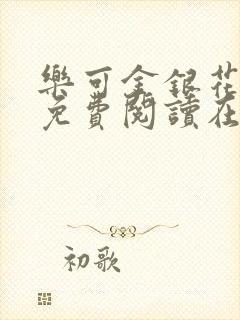 樂可金銀花
免費閱讀在
初歌